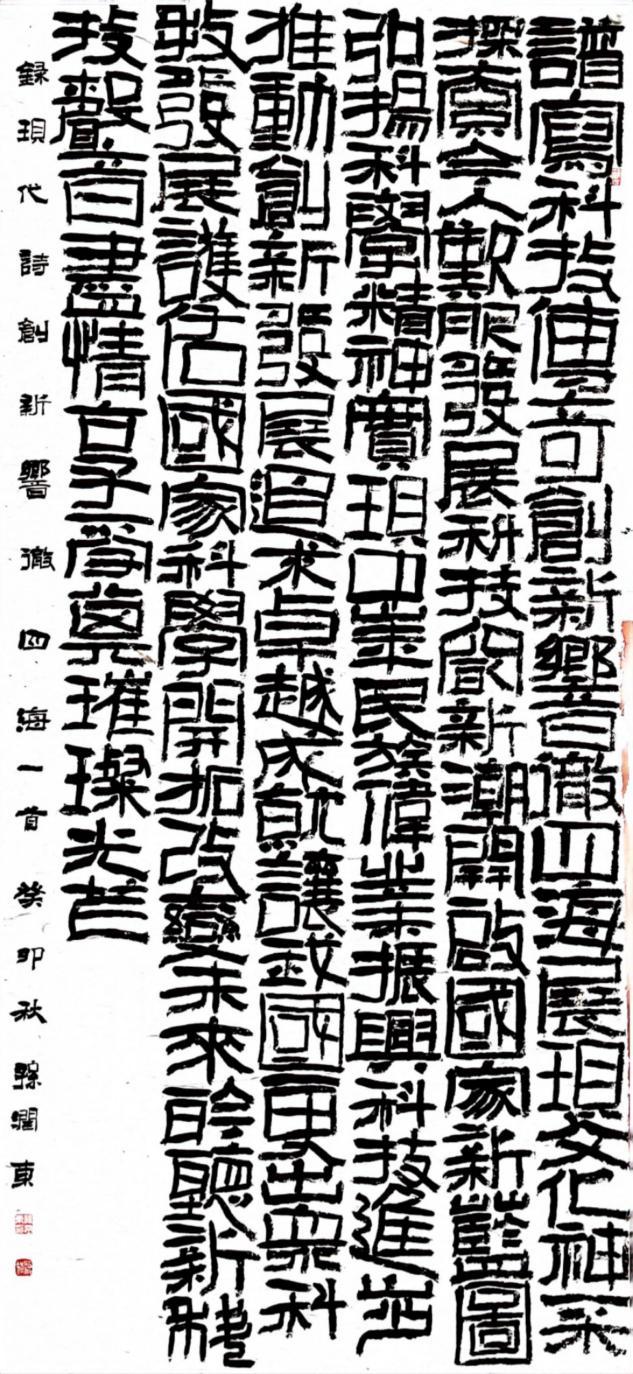 譜寫科技傳奇創新響徹四海展現文化神采
探索令人歎服發展科技新潮開啟國家新藍圖
弘揚科學精神實現中華民族偉業振興科技進步
推動創新發展追求卓越成就讓我國更出眾科
技發展護佑國家科學開拓改變未來聆聽新科
技聲音盡情享受璀璨光芒
錄現代詩創新響徹四海一首癸卯秋孫潤東